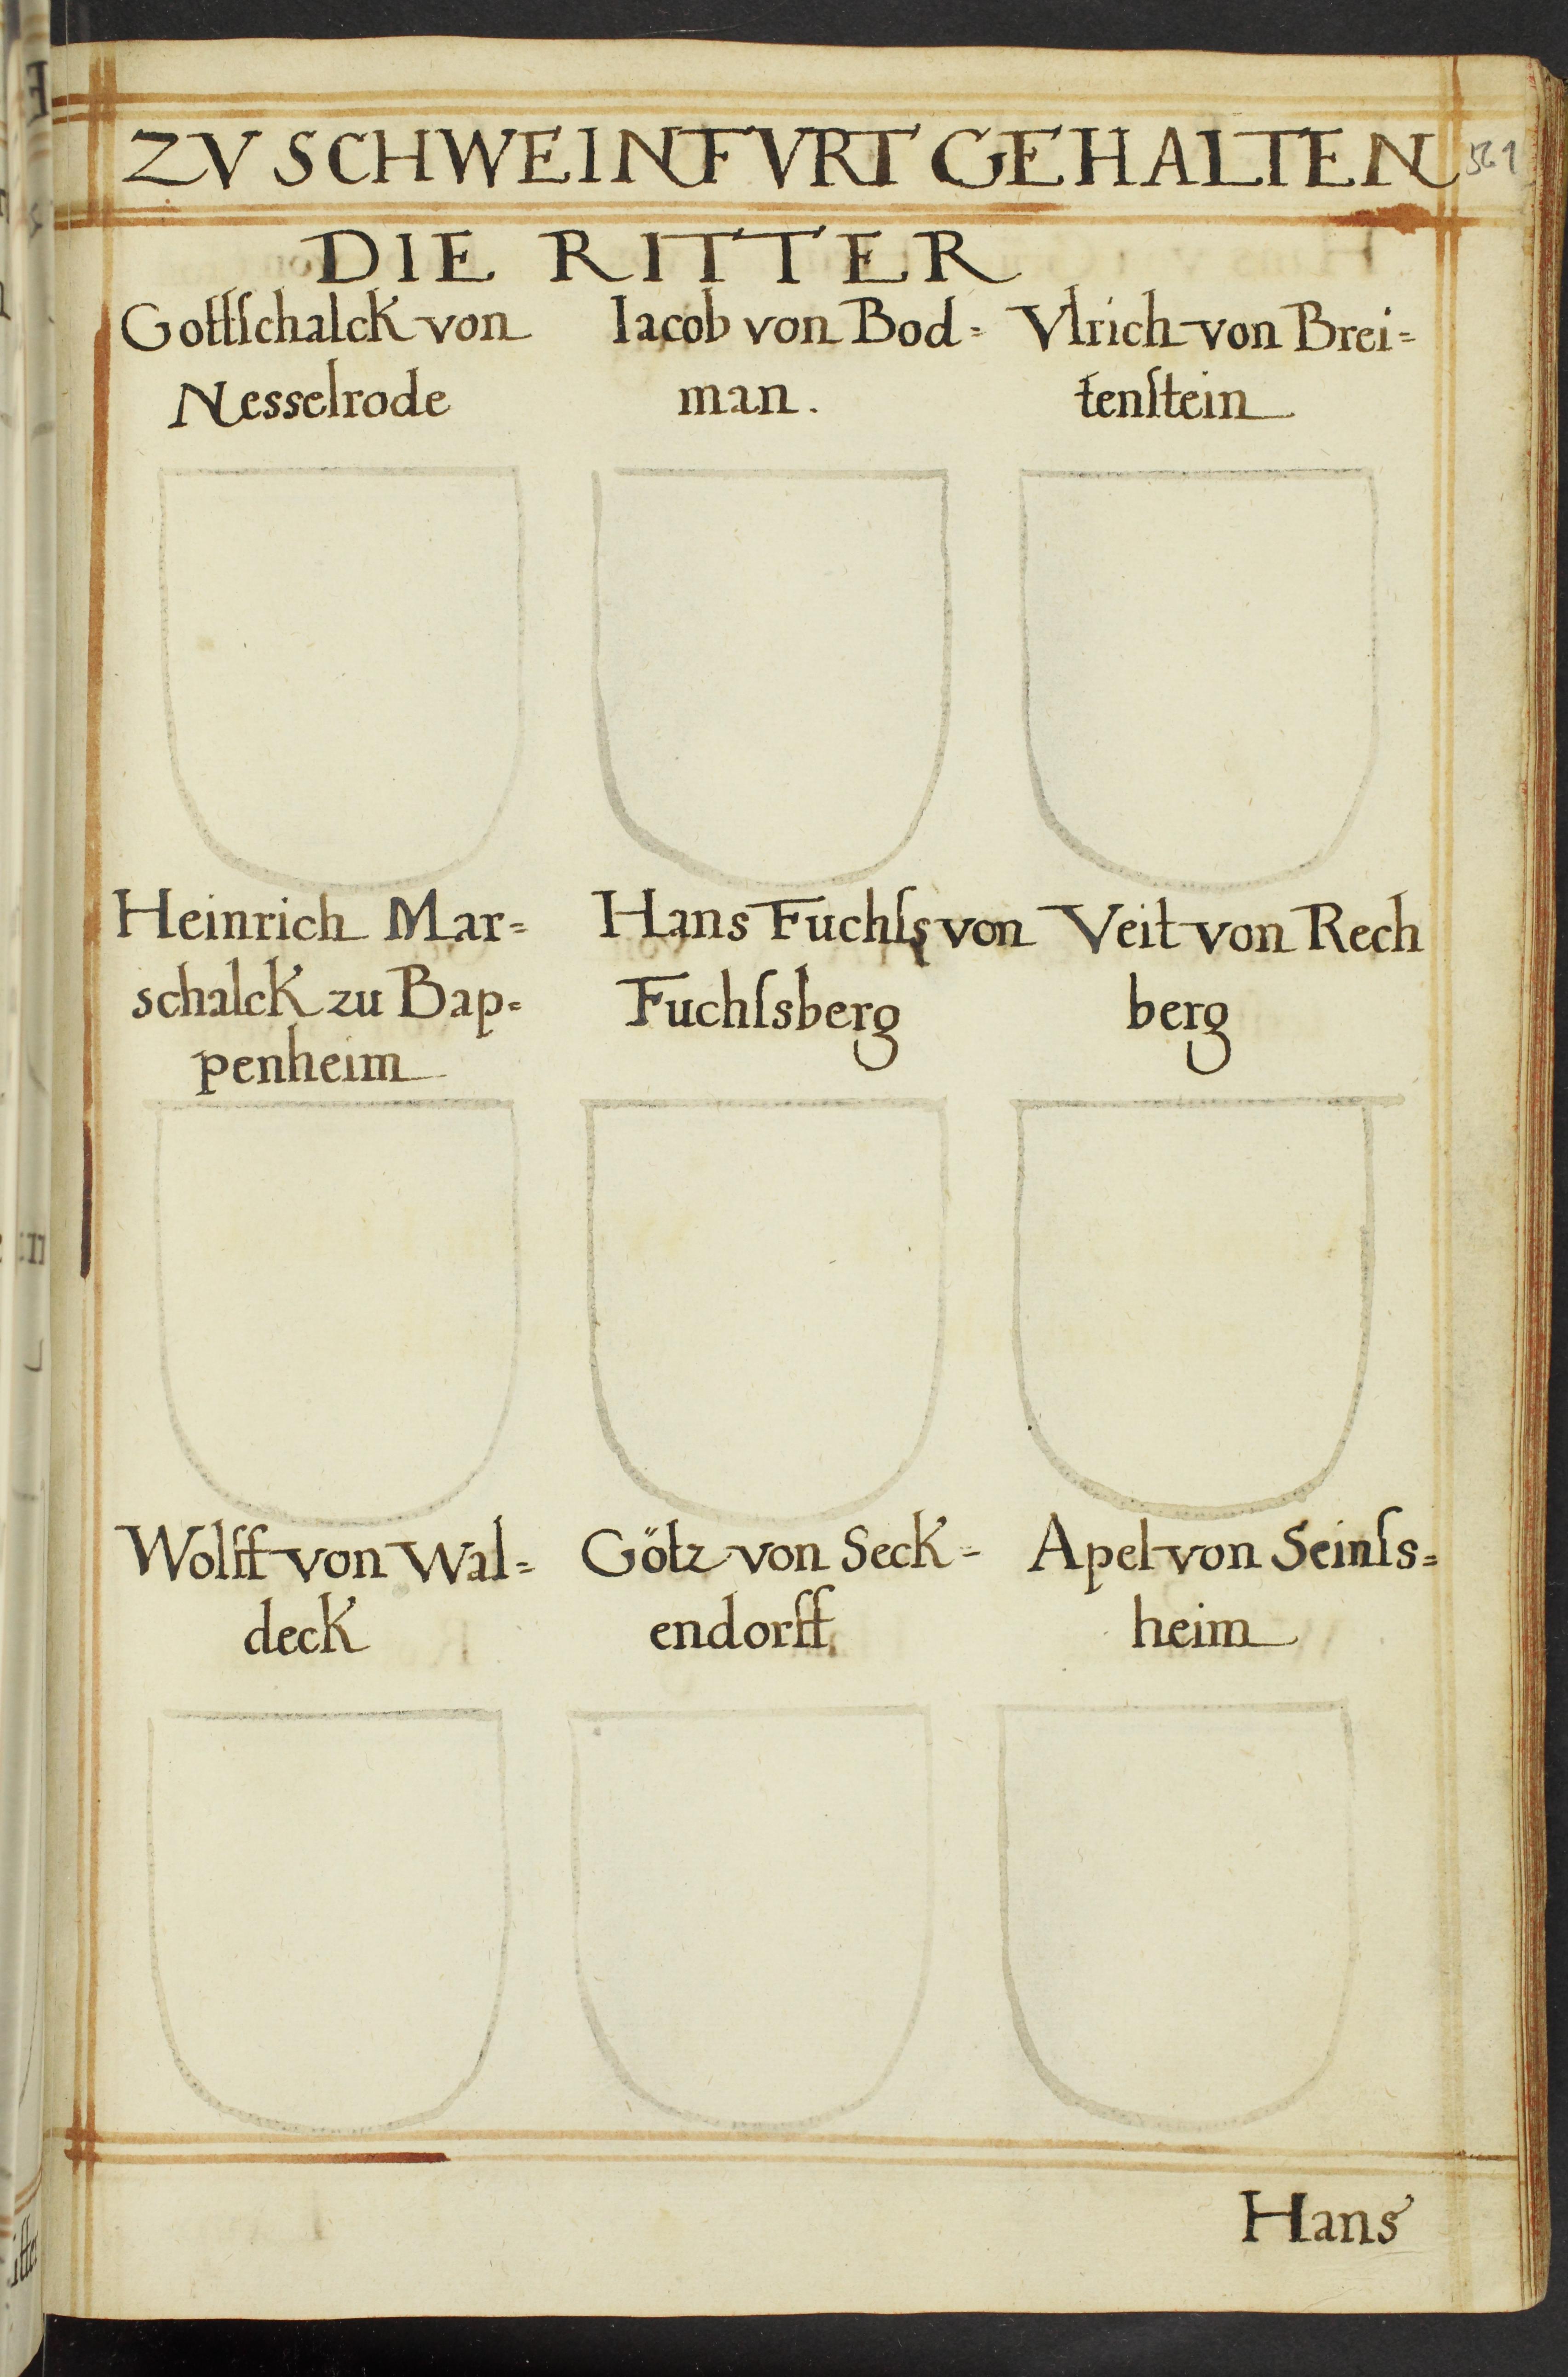 ZV SCHWEINFVRT GEHALTEN
561
DIE RITTER
Gottſchalck von
Nesselrode
Iacob von Bod=
man.
Vlrich von Brei=
tenſtein
Heinrich Mar=
schalck zu Bap=
penheim
Hans Fuchſs von
Fuchſsberg
Veit von Rech
berg
Wolff von Wal=
deck
Götz von Seck=
endorff
Apel von Seinſs=
heim
Hans